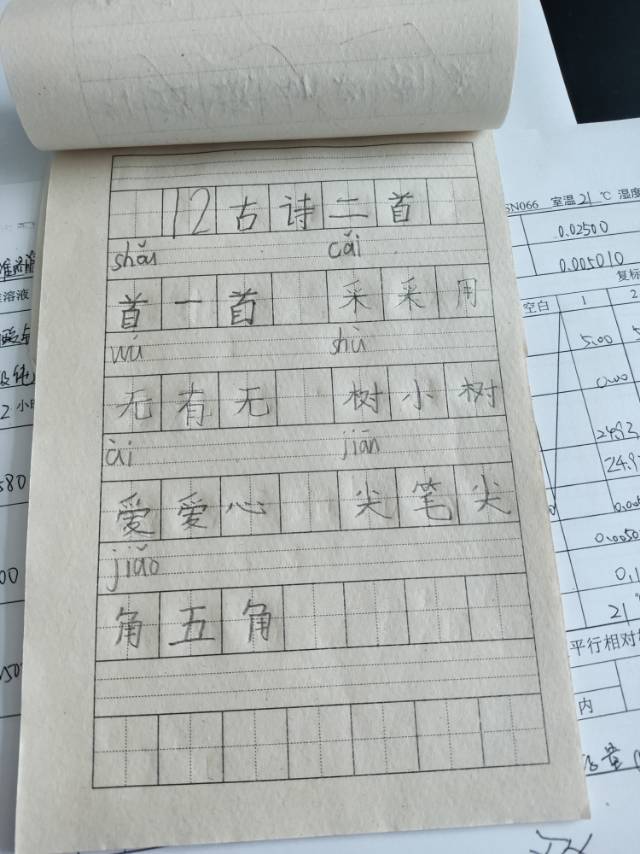 12古诗二首
shǒu cǎi
首一首 采采用
wú shù
无有无 树小树
ài jiān
爱爱心 尖笔尖
jiǎo
角五角
SN066 室温21℃ 湿度
0.02500
0.005010
复标
空白 1 2
5.00
0.00
24.9
0.0050
0.1
21
平行相对
内
溶液
2小
580
00